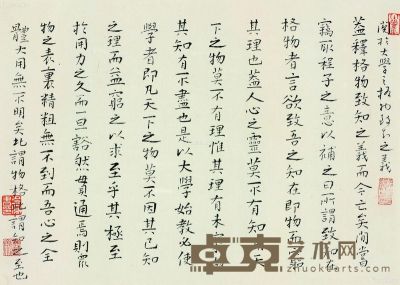 関於大學之格物致知之義
蓋釋格物致知之義而今亡矣間嘗
竊取程子之意以補之曰所謂致知在
格物者言欲致吾之知在即物而窮
其理也蓋人心之靈莫不有知而天
下之物莫不有理惟其理有未
其知有不盡也是以大學始教必使
學者即凡天下之物莫不因其已知
之理而益窮之以求至乎其極至
於用力之久而一旦豁然貫通焉則眾
物之表裏精粗無不到而吾心之全
體大用無不明矣此謂物格此謂知之至也
卓克艺术网